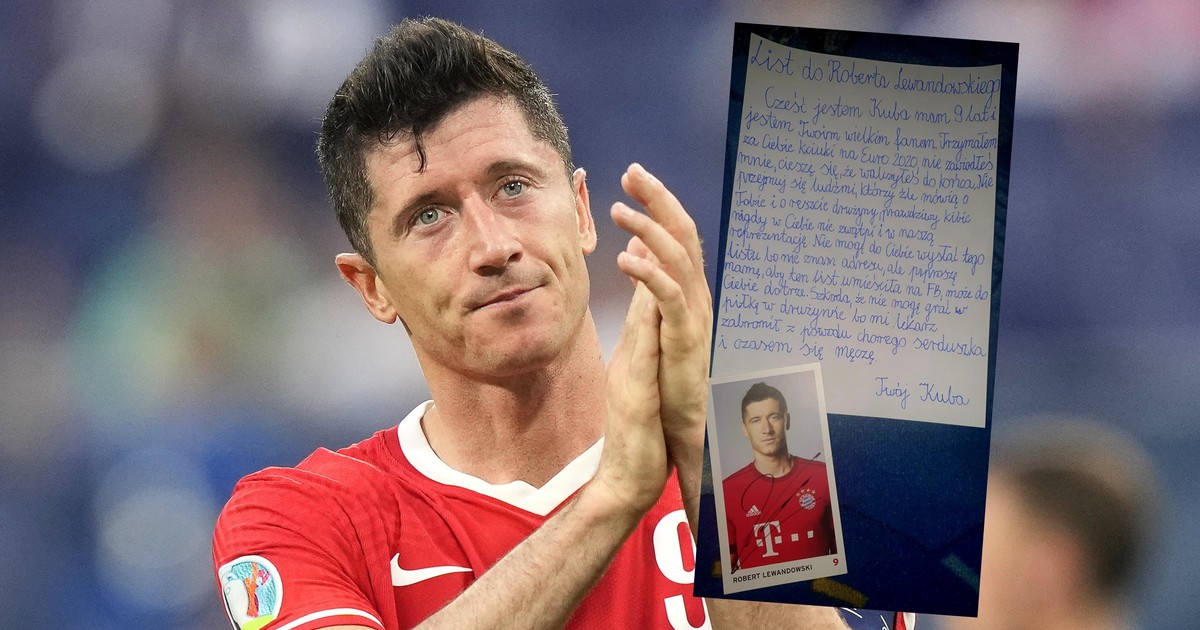 List do Roberta Lewandowskiego
Cześć jestem Kuba mam 9 lat i
jestem Twoim wielkim fanem. Trzymałem
za Ciebie kciuki na Euro 2020, nie zawiodłeś
mnie, cieszę się, że walczyłeś do końca. Nie
przejmuj się ludźmi, którzy źle mówią o
Tobie i o reszcie drużyny, prawdziwy kibic
nigdy w Ciebie nie zwątpi i w naszą
reprezentację. Nie mogę do Ciebie wysłać tego
listu bo nie znam adresu, ale poproszę
mamę, aby ten list umieściła na FB, może do
Ciebie dotrze. Szkoda, że nie mogę grać w
piłkę w drużynie bo mi lekarz
zabronił z powodu chorego serduszka
i czasem się męczę.
Twój Kuba
T
ROBERT LEWANDOWSKI 9
9